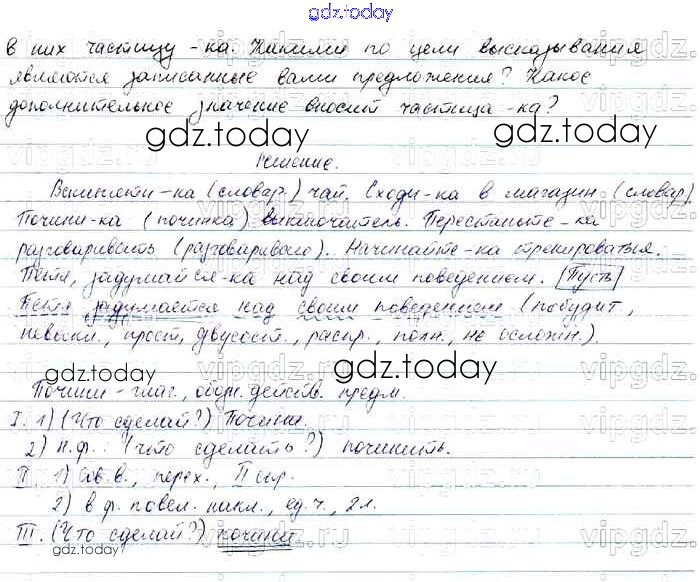 gdz.today
в них частицу -ка. Какими по цели высказывания
являются записанные вами предложения? Какое
дополнительное значение вносит частица -ка?
gdz.today gdz.today
Решение.
Вскипяти-ка (словар.) чай. Сходи-ка в магазин (словар).
Почини-ка (починка) выключатель. Перестаньте-ка
разговаривать (разговаривает). Начинайте-ка тренироваться.
Петя, задумайся-ка над своим поведением. [Пусть]
Петя задумается над своим поведением (побудит.,
невоскл., прост., двусост., распр., полн., не осложн.).
gdz.today gdz.today
Почини - глаг., обозн. действ. предм.
I. 1) (Что сделай?) Почини.
2) н.ф.: (что сделать?) починить.
II. 1) Сов.в., перех., II спр.
2) в ф. повел. накл., ед.ч., 2л.
III. (Что сделай?) почини
gdz.today
vipgdz.ru